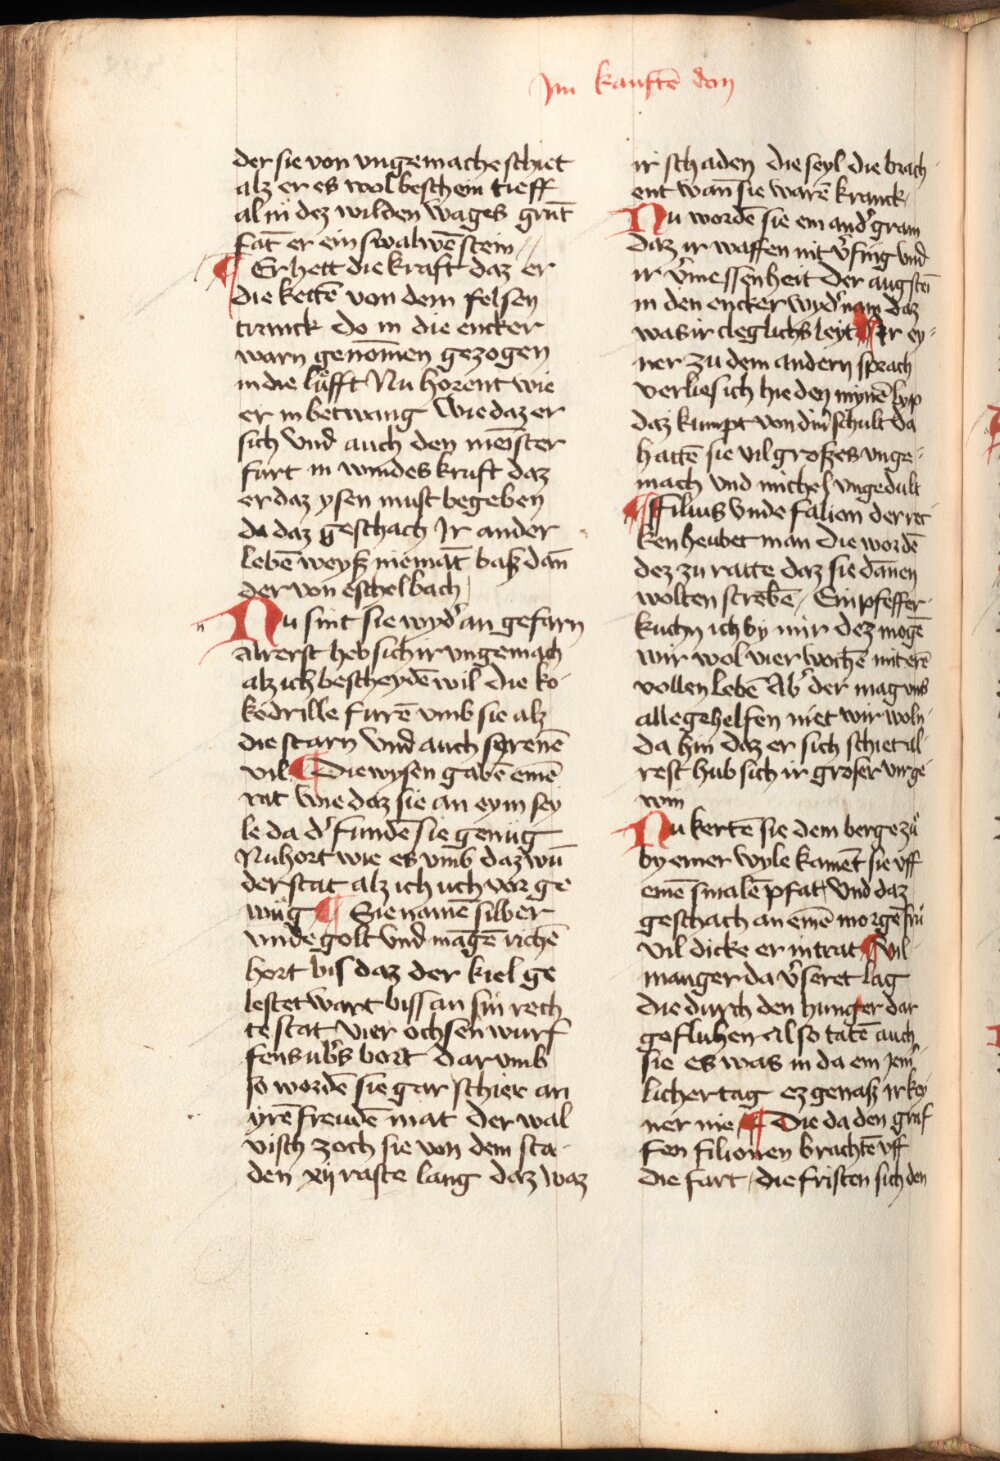 Im kauftē don
der sie von vngemache schiet
alz er es wol beschein tieff
al in dez wilden wages grūt
fāt er ein swalwē stein
¶ Er hett die kraft daz er
die kettē von dem felsen
tranck do in die encker
warn genōmen gezogen
in die lüfft Nu horent wie
er in betwang Wie daz er
sich vnd auch den meinster
furt in windes kruft daz
er daz ysen must begeben
da daz geschach Ir ander
lebē weyß niemāt baß dān
der von eschelbach
Nu sint sie wyd' an gefarn
alrerst heb sich ir vngemach
alz ich bescheydē wil die ko-
kedrille furē vmb sie alz
die starn vnd auch syrenē
vil ¶ Die wysen gabē einē
rat wie daz sie an eym sey
le da d' fundē sie genüg
Nu hort wie es vmb daz wū
der stat alz ich uch vor ge
wüg ¶ Sie namē silber
vnde golt vnd māgē richē
hort bis daz der kiel ge
lestet wart biss an sin rech
te stat vier ochsen wurf
fens vb's bort dar vmb
so wordē sie gar schier an
yrē freudē mat der wal
visch zoch sie von dem sta-
den xij raste lang daz waz
ir schaden die seyl die brach-
ent wān sie warē kranck
Nu wordē sie ein and' gram
daz ir waffen nit v'fing vnd
ir v'messenheit der augstē
in den encker wyd' nam daz
was ir cleglichs leyt ¶ Ir ey-
ner zu dem andern sprach
verlies ich hie den mynē lyp
daz kumpt von din' schult da
hattē sie vil großes vnge-
mach vnd michel vngedult
¶ Filius vnde falion der rec-
ken heubet man die wordē
dez zu ratte daz sie dānen
wolten strebē Ein pfeffer-
kuchn ich by mir dez mogē
wir wol vier wochē miterē
vollen lebē Ab' der mag vns
alle gehelfen niet wir woln
da hin daz er sich schiet al-
rest hub sich ir groser vnge
win
Nu kertē sie dem berge zü
by einer wyle kament sie vff
einē smalē pfat vnd daz
geschach an einē morgē frü
vil dicke er in trat ¶ Vil
manger da v'seret lag
die durch den hunger dar
gefluhen Also tatē auch
sie es was in da ein jem'
licher tag ez genaß ir key
ner nie ¶ Die da den graf
fen filionen brachtē vff
die fart die fristen sich den